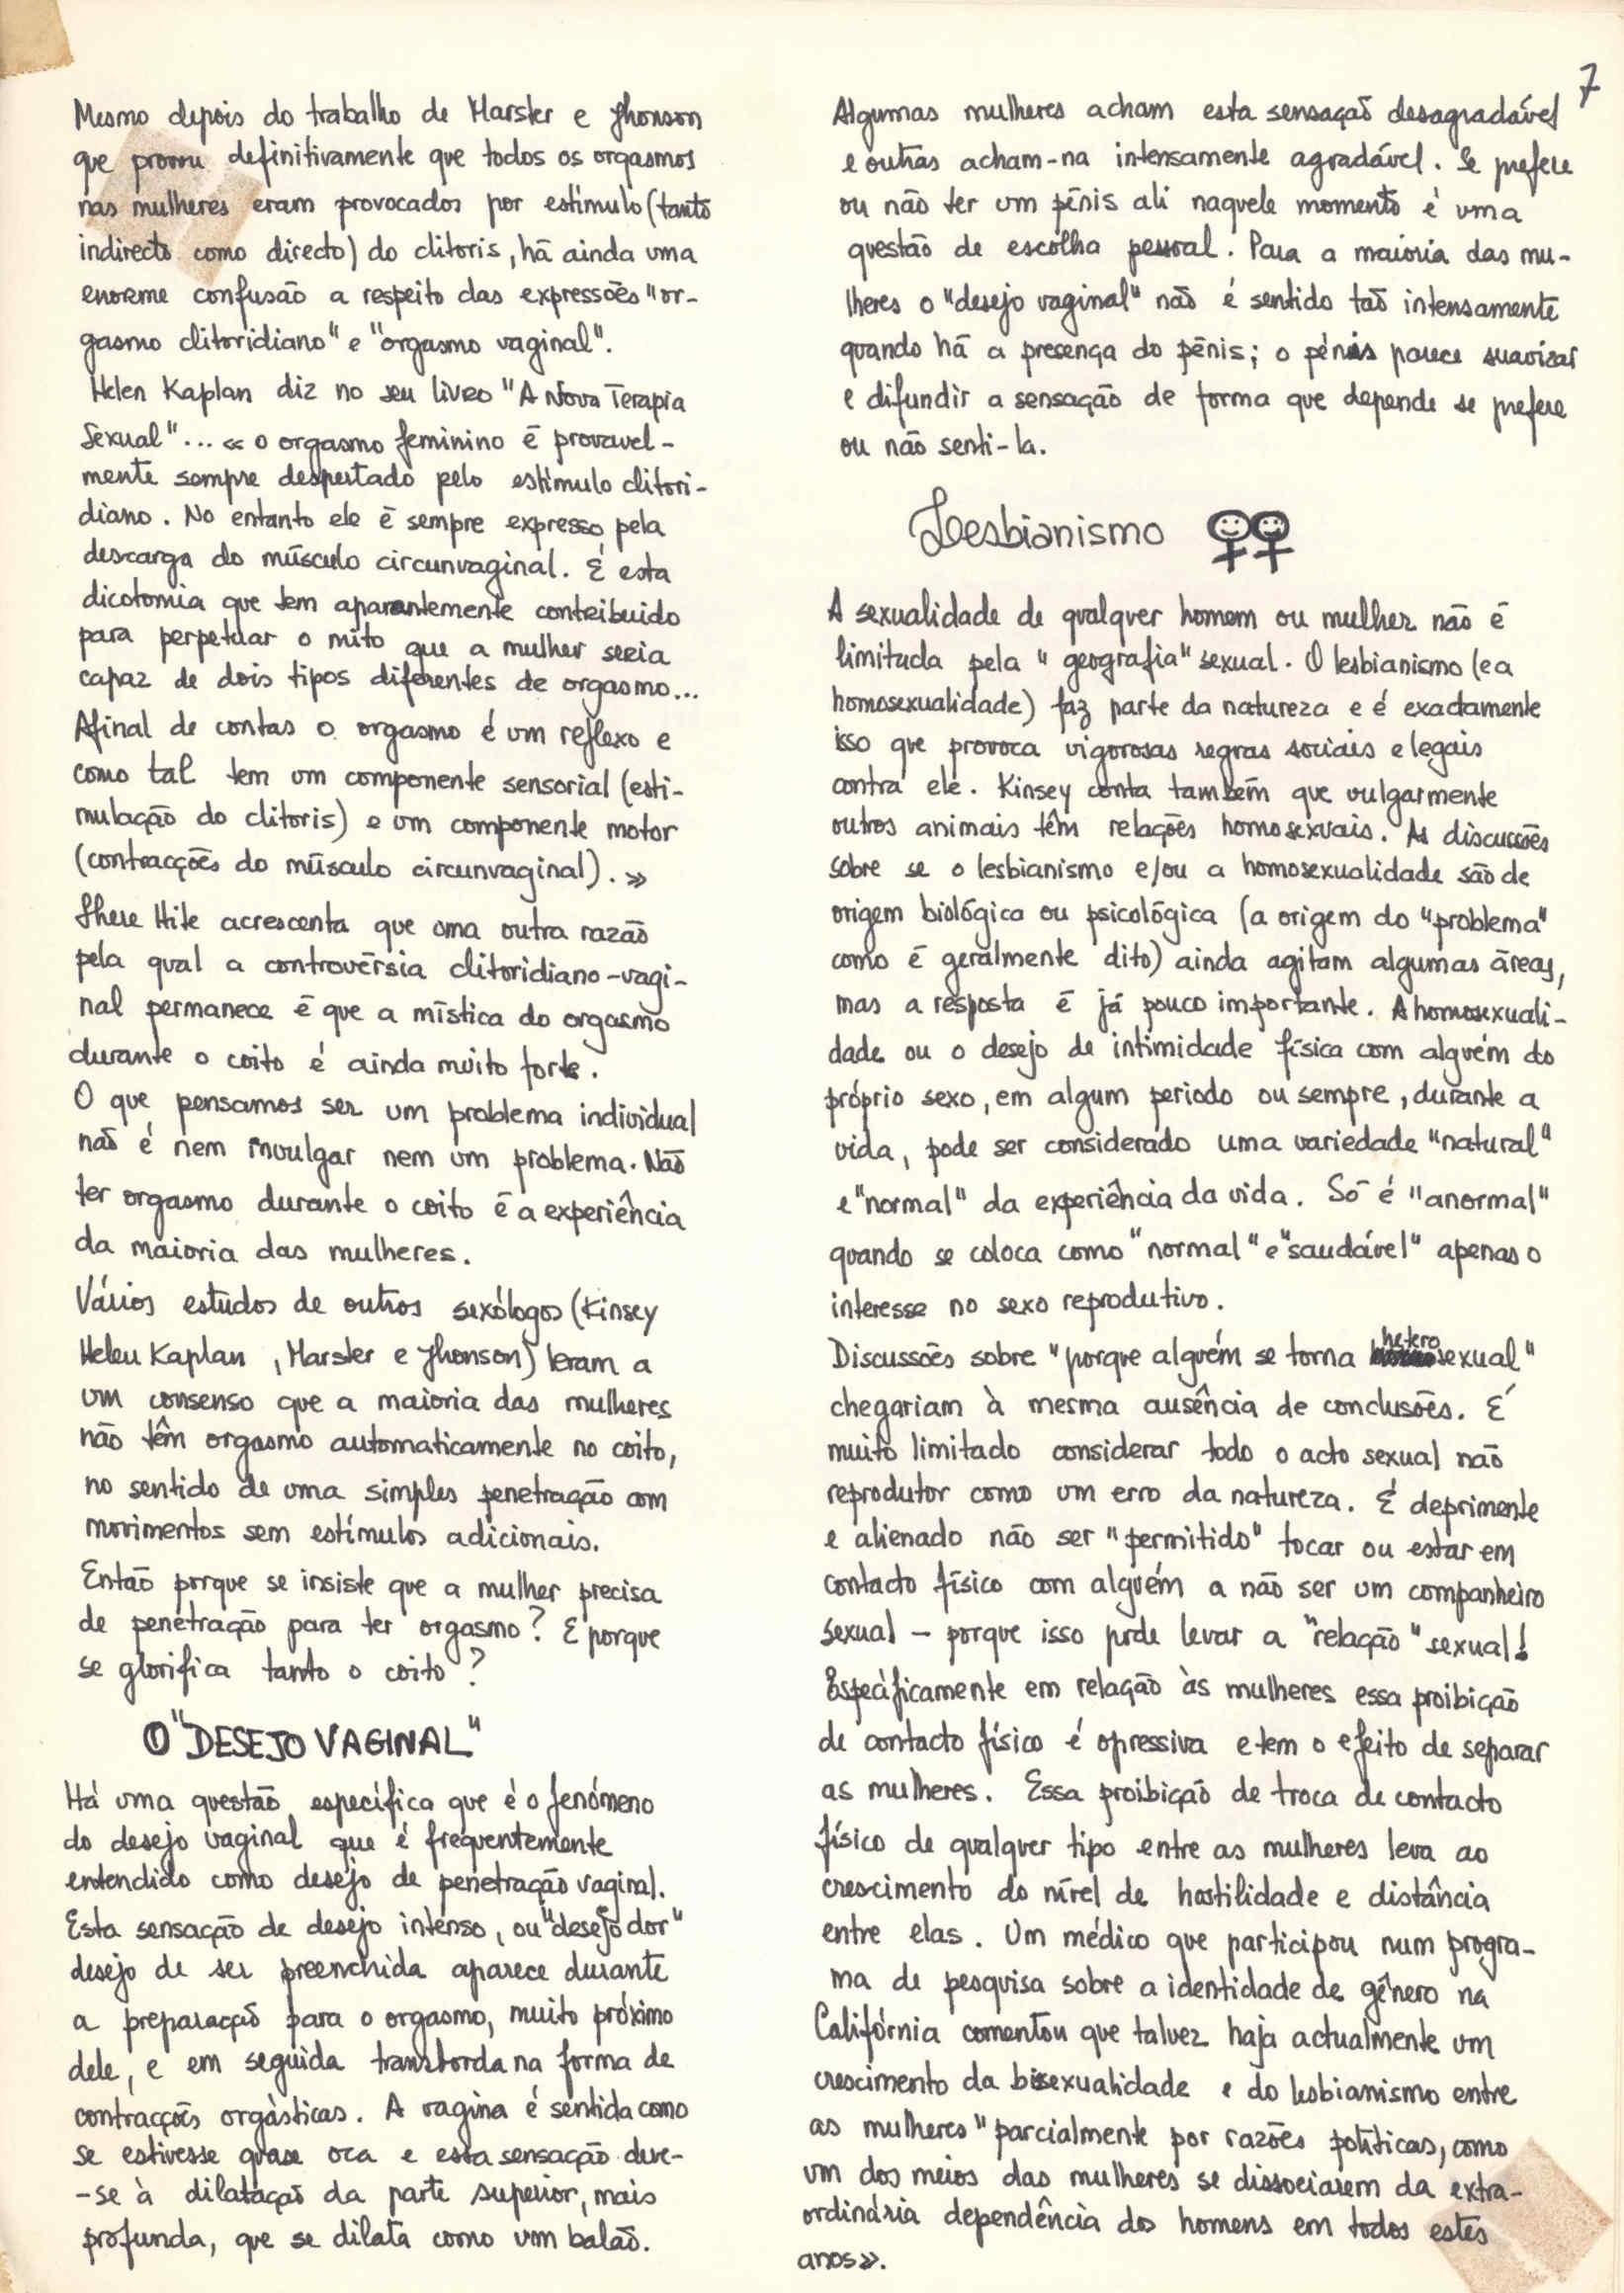 7
Mesmo depois do trabalho de Marster e Jhonson
que provou definitivamente que todos os orgasmos
nas mulheres eram provocados por estímulo (tanto
indirecto como directo) do clitoris, há ainda uma
enorme confusão a respeito das expressões "or-
gasmo clitoridiano" e "orgasmo vaginal".
Helen Kaplan diz no seu livro "A Nova Terapia
Sexual"... « o orgasmo feminino é provavel-
mente sempre despertado pelo estímulo clitori-
diano. No entanto ele é sempre expresso pela
descarga do músculo circunvaginal. É esta
dicotomia que tem aparentemente contribuido
para perpetuar o mito que a mulher seria
capaz de dois tipos diferentes de orgasmo...
Afinal de contas o orgasmo é um reflexo e
como tal tem um componente sensorial (esti-
mulação do clitoris) e um componente motor
(contracções do músculo circunvaginal). »
Shere Hite acrescenta que uma outra razão
pela qual a controvérsia clitoridiano-vagi-
nal permanece é que a mística do orgasmo
durante o coito é ainda muito forte.
O que pensamos ser um problema individual
não é nem invulgar nem um problema. Não
ter orgasmo durante o coito é a experiência
da maioria das mulheres.
Vários estudos de outros sexólogos (Kinsey
Helen Kaplan, Marster e Jhonson) leram a
um consenso que a maioria das mulheres
não têm orgasmo automaticamente no coito,
no sentido de uma simples penetração com
movimentos sem estímulos adicionais.
Então porque se insiste que a mulher precisa
de penetração para ter orgasmo? E porque
se glorifica tanto o coito?
O "DESEJO VAGINAL"
Há uma questão específica que é o fenómeno
do desejo vaginal que é frequentemente
entendido como desejo de penetração vaginal.
Esta sensação de desejo intenso, ou "desejo dor"
desejo de ser preenchida aparece durante
a preparação para o orgasmo, muito próximo
dele, e em seguida transborda na forma de
contracções orgásticas. A vagina é sentida como
se estivesse quase oca e esta sensação deve-
-se à dilatação da parte superior, mais
profunda, que se dilata como um balão.
Algumas mulheres acham esta sensação desagradável
e outras acham-na intensamente agradável. Se prefere
ou não ter um pénis ali naquele momento é uma
questão de escolha pessoal. Para a maioria das mu-
lheres o "desejo vaginal" não é sentido tão intensamente
quando há a presença do pénis; o pénis parece suavizar
e difundir a sensação de forma que depende se prefere
ou não senti-la.
Lesbianismo
A sexualidade de qualquer homem ou mulher não é
limitada pela "geografia" sexual. O lesbianismo (e a
homosexualidade) faz parte da natureza e é exactamente
isso que provoca vigorosas regras sociais e legais
contra ele. Kinsey conta também que vulgarmente
outros animais têm relações homosexuais. As discussões
sobre se o lesbianismo e/ou a homosexualidade são de
origem biológica ou psicológica (a origem do "problema"
como é geralmente dito) ainda agitam algumas áreas,
mas a resposta é já pouco importante. A homosexuali-
dade ou o desejo de intimidade física com alguém do
próprio sexo, em algum periodo ou sempre, durante a
vida, pode ser considerado uma variedade "natural"
e "normal" da experiência da vida. Só é "anormal"
quando se coloca como "normal" e "saudável" apenas o
interesse no sexo reprodutivo.
Discussões sobre "porque alguém se torna heterosexual"
chegariam à mesma ausência de conclusões. É
muito limitado considerar todo o acto sexual não
reprodutor como um erro da natureza. É deprimente
e alienado não ser "permitido" tocar ou estar em
contacto físico com alguém a não ser um companheiro
sexual - porque isso pode levar a "relação" sexual!
Específicamente em relação às mulheres essa proibição
de contacto físico é opressiva e tem o efeito de separar
as mulheres. Essa proibição de troca de contacto
físico de qualquer tipo entre as mulheres leva ao
crescimento do nível de hostilidade e distância
entre elas. Um médico que participou num progra-
ma de pesquisa sobre a identidade de género na
Califórnia comentou que talvez haja actualmente um
crescimento da bisexualidade e do lesbianismo entre
as mulheres "parcialmente por razões políticas, como
um dos meios das mulheres se dissociarem da extra-
ordinária dependência dos homens em todos estes
anos».